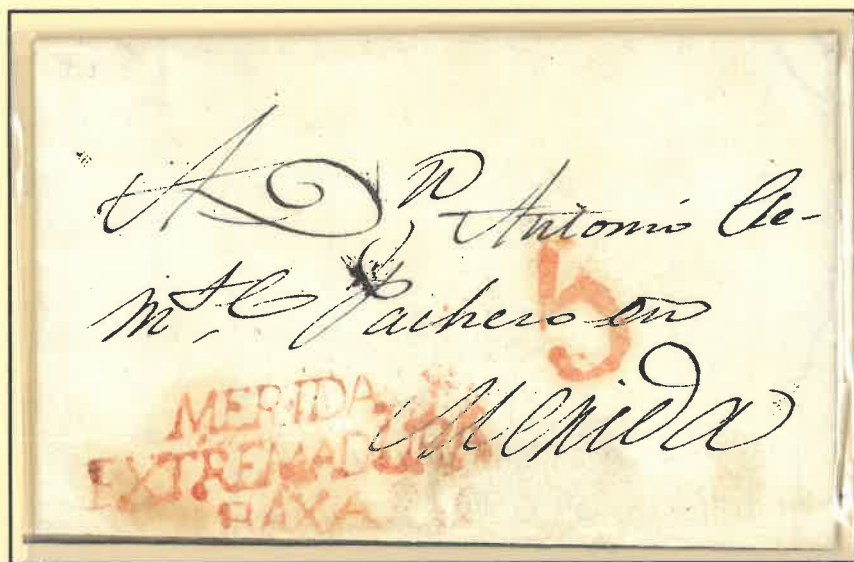 A Dn Antonio Cle-
mte Pachero en
Merida
5
MERIDA
EXTREMADURA
BAXA